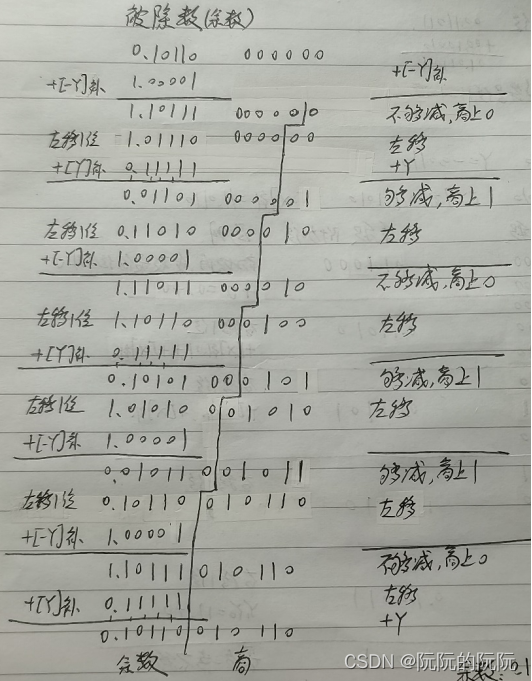 被除数(余数)
0.10110 000000
+[-Y]补 1.00001 +[-Y]补
1.10111 000000 不够减,商上0
左移1位 1.01110 000000 左移
+[Y]补 0.11111 +Y
0.01101 000001 够减,商上1
左移1位 0.11010 000010 左移
+[-Y]补 1.00001
1.11011 000010 不够减,商上0
左移1位 1.10110 000100 左移
+[Y]补 0.11111
0.10101 000101 够减,商上1
左移1位 1.01010 001010 左移
+[-Y]补 1.00001
0.01011 001011 够减,商上1
左移1位 0.10110 010110 左移
+[-Y]补 1.00001
1.10111 010110 不够减,商上0
左移
+[Y]补 0.11111 +Y
0.10110 010110
余数 商
CSDN @阮阮的阮阮